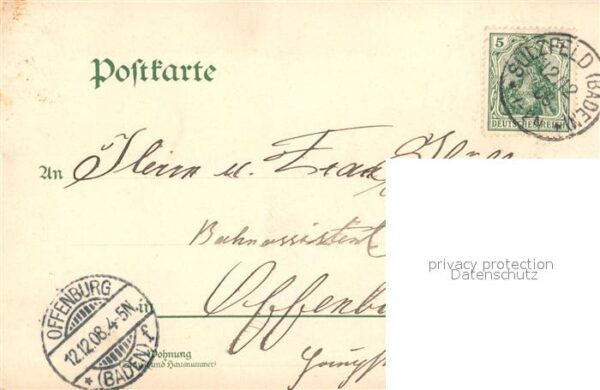 5
DEUTSCHES REICH
* SULZFELD (BADEN) *
12 12
Postkarte
An Herrn u. Frau
Bahnassistent
privacy protection
Datenschutz
OFFENBURG
12.12.08.4-5N.
* (BADEN) f
in Offenb
Wohnung
(Straße und Hausnummer)